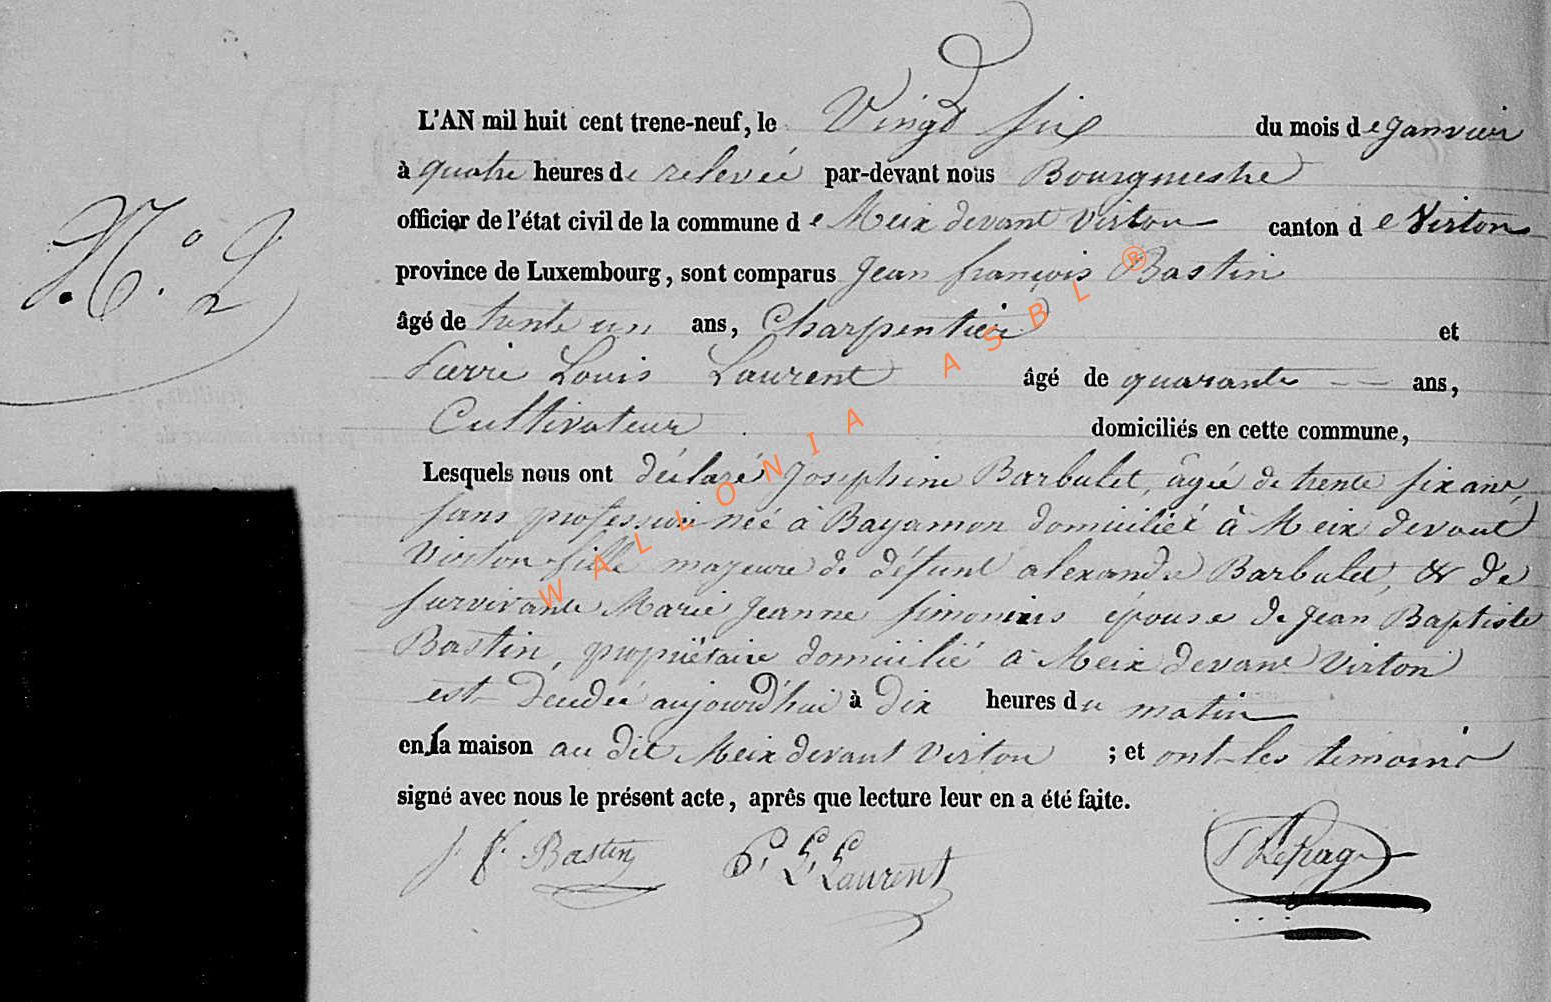 L'AN mil huit cent trene-neuf, le Vingt six du mois de Janvier
à quatre heures de relevée par-devant nous Bourgmestre
officier de l'état civil de la commune de Meix devant Virton canton de Virton
N.º 2
province de Luxembourg, sont comparus Jean françois Bastin
âgé de trente un ans, Charpentier et
Pierre Louis Laurent âgé de quarante -- ans,
Cultivateur domiciliés en cette commune,
Lesquels nous ont déclaré Josephine Barbulet, âgée de trente six ans,
sans profession née à Bayamon domiciliée à Meix devant
Virton fille majeure de défunt alexandre Barbulet, & de
survivante Marie Jeanne Simonis épouse de Jean Baptiste
Bastin, propriëtaire domicilié à Meix devant Virton
est décedée aujourd'hui à dix heures du matin
en la maison au dit Meix devant Virton ; et ont les témoins
signé avec nous le présent acte, après que lecture leur en a été faite.
J. f. Bastin P. L. Laurent Lepage
WALLONIA ASBL ®